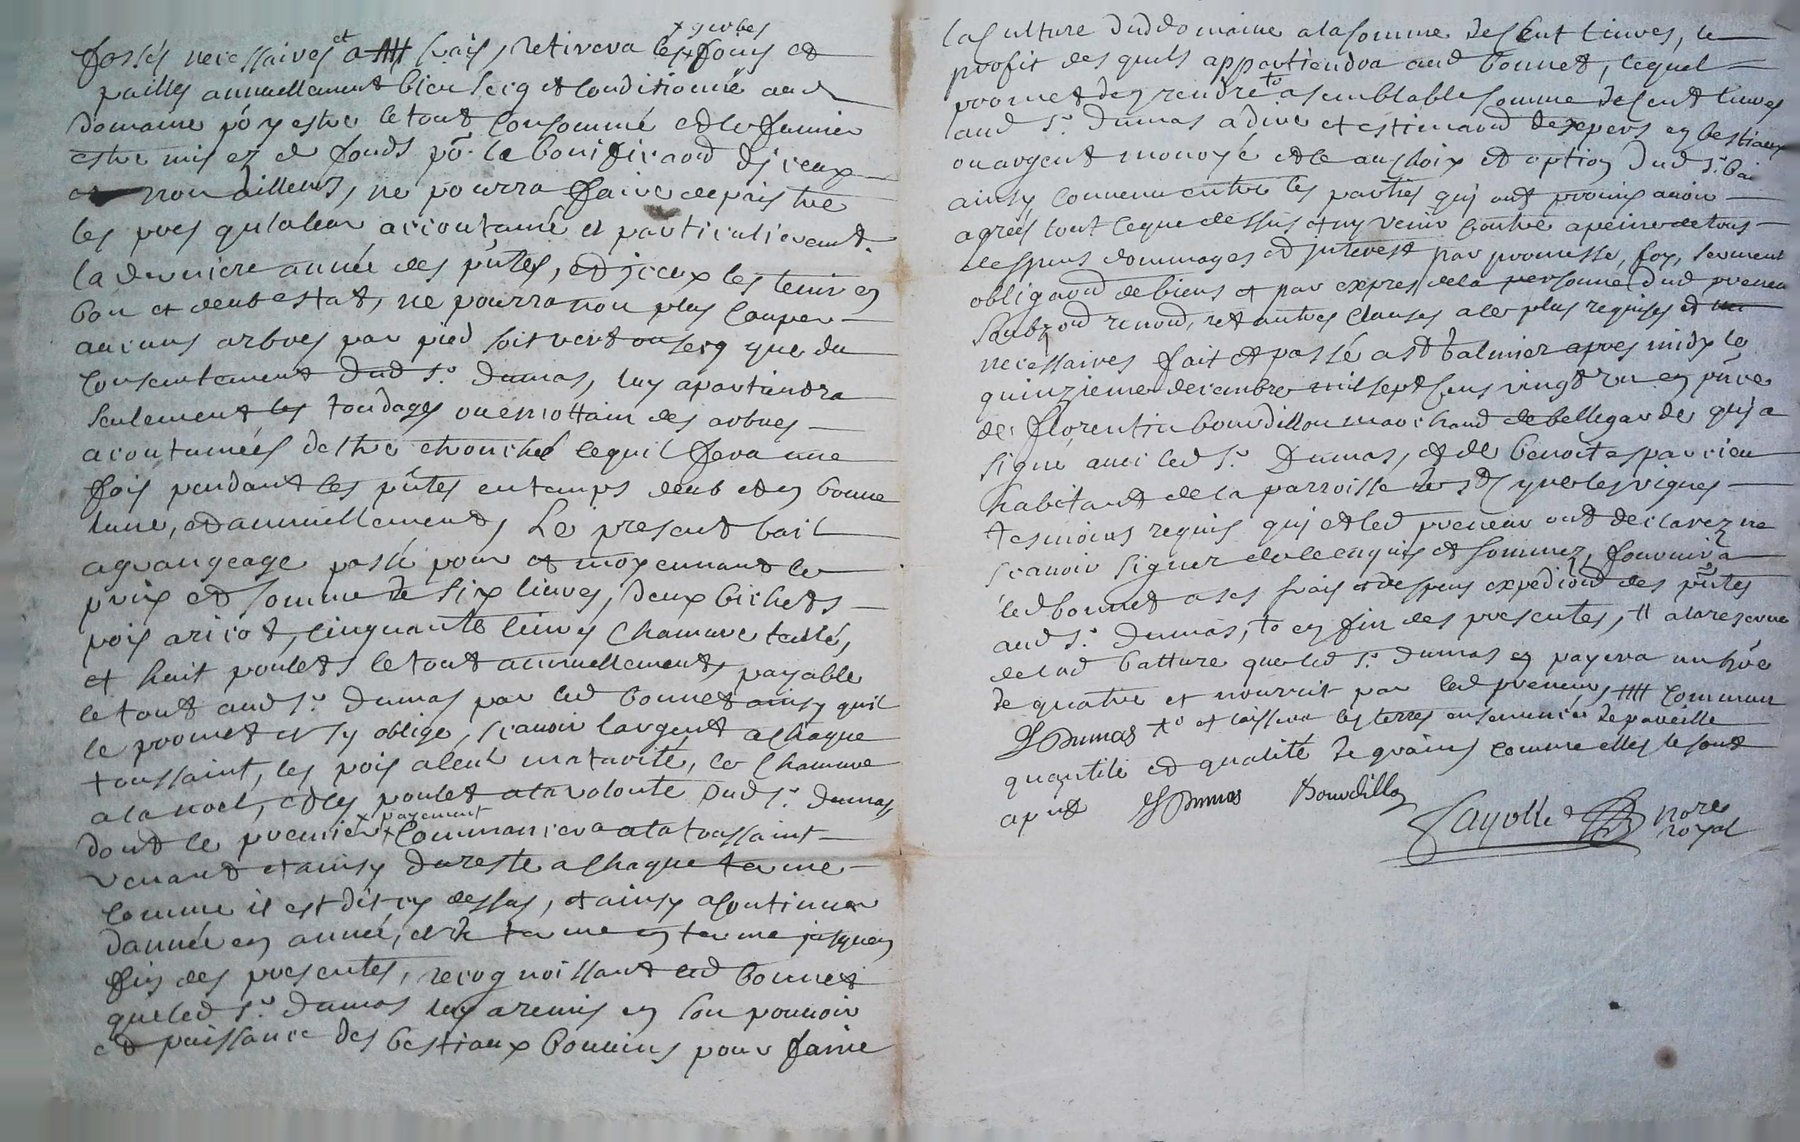 × gerbes
fossés necessaires et a frais, retirera les × foins et
pailles annuellement bien secq et conditionné aud
domaine po.r y estre le tout consommé et le fumier
estre mis ez d. fonds po.r la bonificaôn d'jceux
et non d'ailleurs, ne pourra faire depaistre
les prés qu'a leur acoutumé et particulierement
la derniere année des pñtes, et jceux les tenir en
bon et deub estat, ne pourra non plus couper
aucuns arbres par pied soit vert ou secq que du
consentement dud s.r Dumas, luy apartiendra
seulement les tondages ou emottain des arbres
acoutumées destre etronché lequ'il fera une
fois pendant les pñtes en temps deub et en bonne
lune, et annuellement, Le present bail
a grangeage passé pour et moyennant le
prix et somme de six livres, deux bichets
pois aricot, cinquante livres chamvre teillé,
et huit poulets le tout annuellement, payable
le tout aud s.r Dumas par led bonnet ainsy qu'il
le promet et s'y oblige, scavoir l'argent a chaque
toussaint, les pois a leur maturité, le chamvre
a la noel, et les poulet a la volonté dud s.r Dumas
× payement
dont le premier × commancera a la toussaint
venant et ainsy du reste a chaque terme
comme il est dit cy dessus, et ainsy a continuer
d'année en année, et de terme en terme jusqu'en
fin des presentes, recognoissant led bonnet
que led s.r Dumas luy a remis en son pouvoir
et puissance des bestiaux bouvins pour faire
la culture dud domaine a la somme de cent livres, le
profit des quels appartiendra aud bonnet, lequel
promet d'en rendre to a semblable somme de cent livres
aud s.r Dumas a dire et estimaôn d'expers en bestiaux
ou argent monoyé et le au choix et option dud s.r
ainsy convenu entre les parties qui ont promis avoir
agreés tout ce que dessus et ny venir contre a peine de tous
despens dommages et jnterest par promesse, foy, serment
obligaôn de biens et par exprés de la personne dud preneur
renonc, et autres clauses a ce plus requises et
necessaires fait et passé a st Galmier apres midy le
quinzieme decembre mil sept cens vingt un en pñce
de florentin bourdillon marchand de bellegarde qui a
signé avec led s.r Dumas, et de benoit esparcieu
habitant de la parroisse de st Cyr les vignes
tesmoins requis qui et led preneur ont declarez ne
scavoir signer de ce enquis et sommez, fournira
led bonnet a ses frais et despens expediôn des pñtes
aud s.r Dumas, to en fin des presentes, tt a la reserve
de lad batture que led s.r Dumas en payera un hôe
de quatre et nourrit par led preneur, commun
Dumas to et laissera les terres ensemencées de pareille
quantité et qualité de grains comme elles le sont
apnt Dumas Bourdillon
Fayolle nore
royal